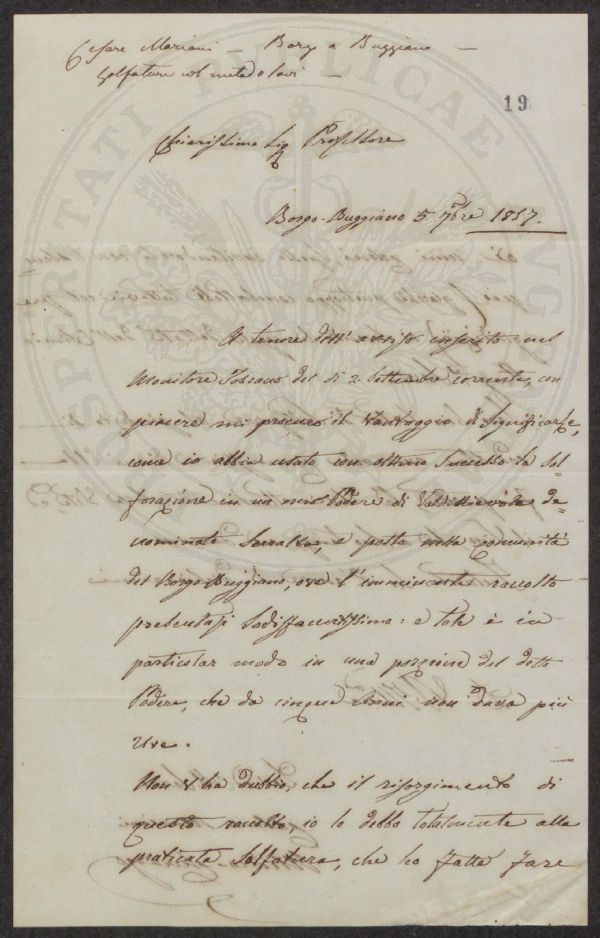 Cesare Mariani — Borgo a Buggiano —
Solfature col metodo Savi —
19.
Chiarissimo Sig Professore
Borgo-Buggiano 5. 7bre 1857.
A tenore dell' avviso inserito nel
Monitore Toscano del di 2 Settembre corrente, con
piacere mi procuro il vantaggio di significarle,
come io abbia usato con ottimo successo la sol-
forazione in un mio Podere di Valdinievole de-
nominato Serralto, e posto nella comunità
del Borgo-Buggiano, ove l' imminente raccolto
presentasi sodisfacentissimo: e tale è in
particolar modo in una porzione del detto
Podere, che da cinque Anni non dava più
Uve.
Non v'ha dubbio, che il risorgimento di
questo raccolto, io lo debbo totalmente alla
praticata solfatura, che ho fatta fare